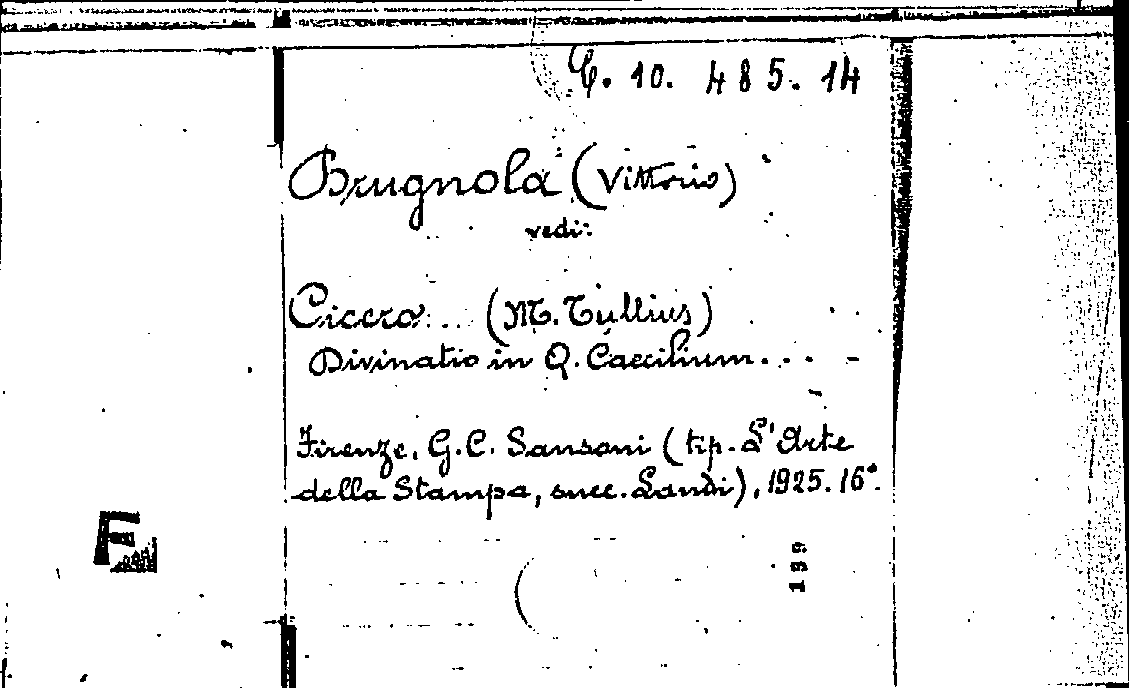 C. 10. 485. 14
Brugnola (Vittorio)
vedi:
Cicero... (M. Tullius)
Divinatio in Q. Caecilium.... -
Firenze, G. C. Sansoni (tip. L'Arte
della Stampa, succ. Landi), 1925. 16°.
F
199